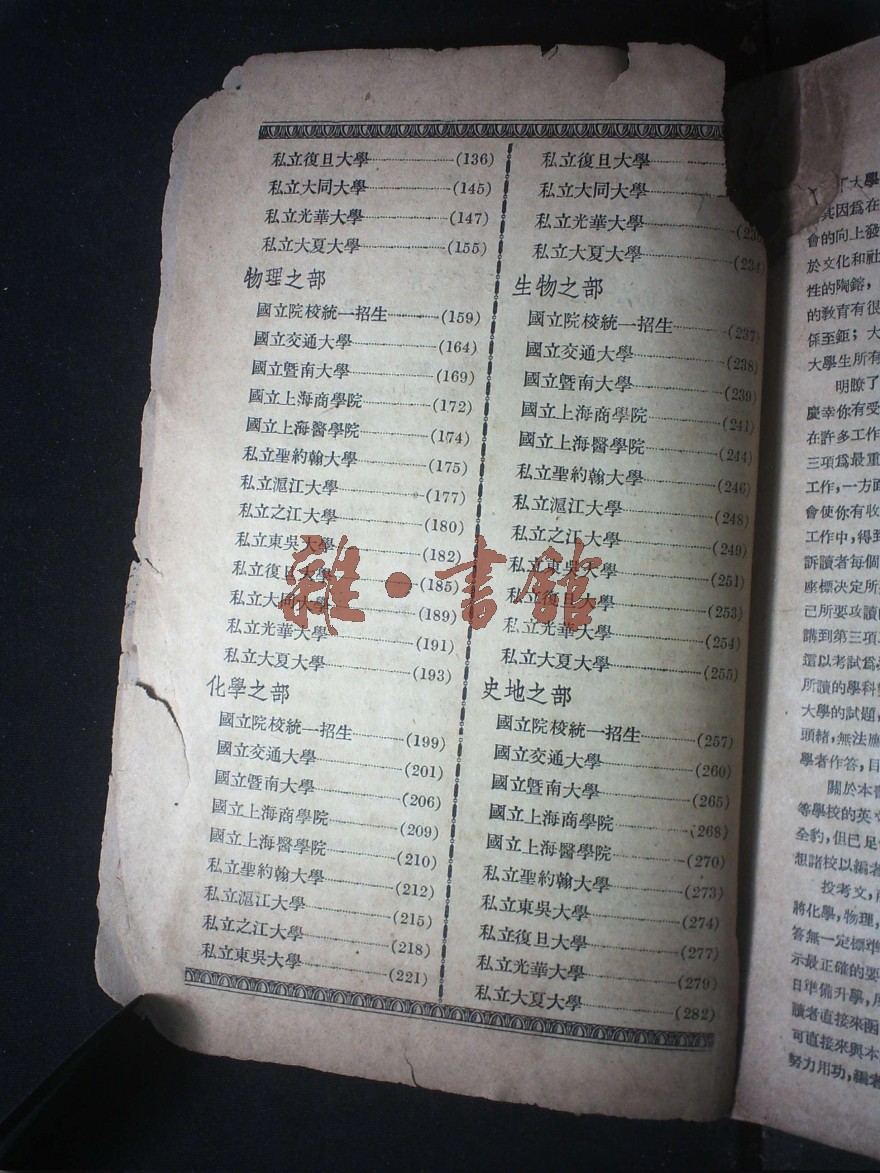 私立復旦大學 (136)
私立大同大學 (145)
私立光華大學 (147)
私立大夏大學 (155)
物理之部
國立院校統一招生 (159)
國立交通大學 (164)
國立曁南大學 (169)
國立上海商學院 (172)
國立上海醫學院 (174)
私立聖約翰大學 (175)
私立滬江大學 (177)
私立之江大學 (180)
私立東吳大學 (182)
私立復旦大學 (185)
私立大同大學 (189)
私立光華大學 (191)
私立大夏大學 (193)
化學之部
國立院校統一招生 (199)
國立交通大學 (201)
國立曁南大學 (206)
國立上海商學院 (209)
國立上海醫學院 (210)
私立聖約翰大學 (212)
私立滬江大學 (215)
私立之江大學 (218)
私立東吳大學 (221)
私立復旦大學
私立大同大學
私立光華大學
私立大夏大學 (234)
生物之部
國立院校統一招生 (237)
國立交通大學 (238)
國立曁南大學 (239)
國立上海商學院 (241)
國立上海醫學院 (244)
私立聖約翰大學 (246)
私立滬江大學 (248)
私立之江大學 (249)
私立東吳大學 (251)
私立復旦大學 (253)
私立光華大學 (254)
私立大夏大學 (255)
史地之部
國立院校統一招生 (257)
國立交通大學 (260)
國立曁南大學 (265)
國立上海商學院 (268)
國立上海醫學院 (270)
私立聖約翰大學 (273)
私立東吳大學 (274)
私立復旦大學 (277)
私立光華大學 (279)
私立大夏大學 (282)
雜·書館
「大學
其因爲在
會的向上發
於文化和社
性的陶鎔，
的敎育有很
係至鉅；大
大學生所有
明瞭了
慶幸你有受
在許多工作
三項爲最重
工作，一方面
會使你有收
工作中，得到
訴讀者每個
座標決定所
己所要攻讀
講到第三項
還以考試爲
所讀的學科
大學的試題，
頭緒，無法應
學者作答，目
關於本書
等學校的英
全豹，但已足
想諸校以編者
投考文，
將化學，物理，
答無一定標準
示最正確的要
日準備升學，
讀者直接來函
可直接來與本
努力用功，編者